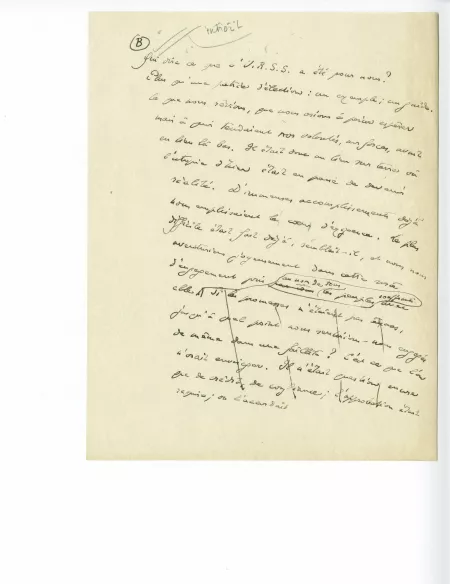 introït
B
Qui dira ce que l'U.R.S.S. a été pour nous ?
Plus qu'une patrie d'élection : un exemple ; un guide.
Ce que nous rêvions, que nous osions à peine espérer
mais à quoi tendaient nos volontés, nos forces, avait
eu lieu là-bas. Il était donc un lieu sur terre où
l'utopie était en passe de devenir
réalité. D'immenses accomplissements déjà
nous emplissaient le cœur d'exigence. Le plus
difficile était fait déjà, semblait-il, et nous nous
aventurions joyeusement dans cette sorte
au nom de tous souffrants
d'engagement pris les peuples avec
elle. Si les promesses n'étaient pas tenues,
jusqu'à quel point nous sentirions-nous engagés
de même dans une faillite ? C'est ce que l'on
n'osait envisager. Il n'était question encore
que de crédit, de confiance ; l'approbation était
requise ; on l'accordait